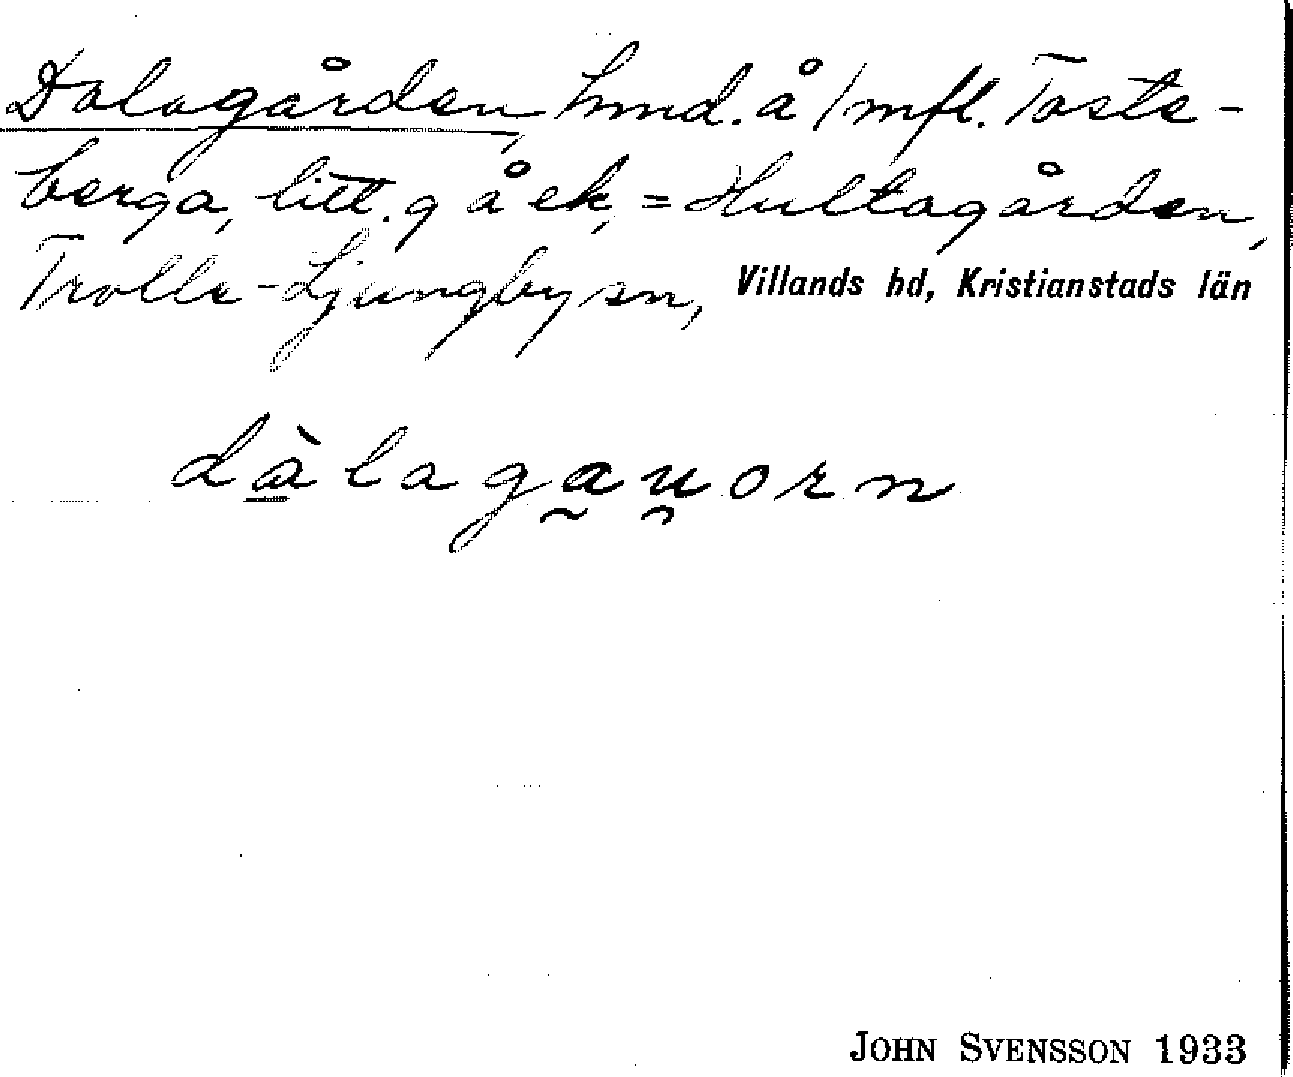 Dalagården, hmd. å 1/mfl. Toste-
berga, litt. g å ek, = Hultagården,
Trolle-Ljungby sn, Villands hd, Kristianstads län
dàlagau̯orn
JOHN SVENSSON 1933